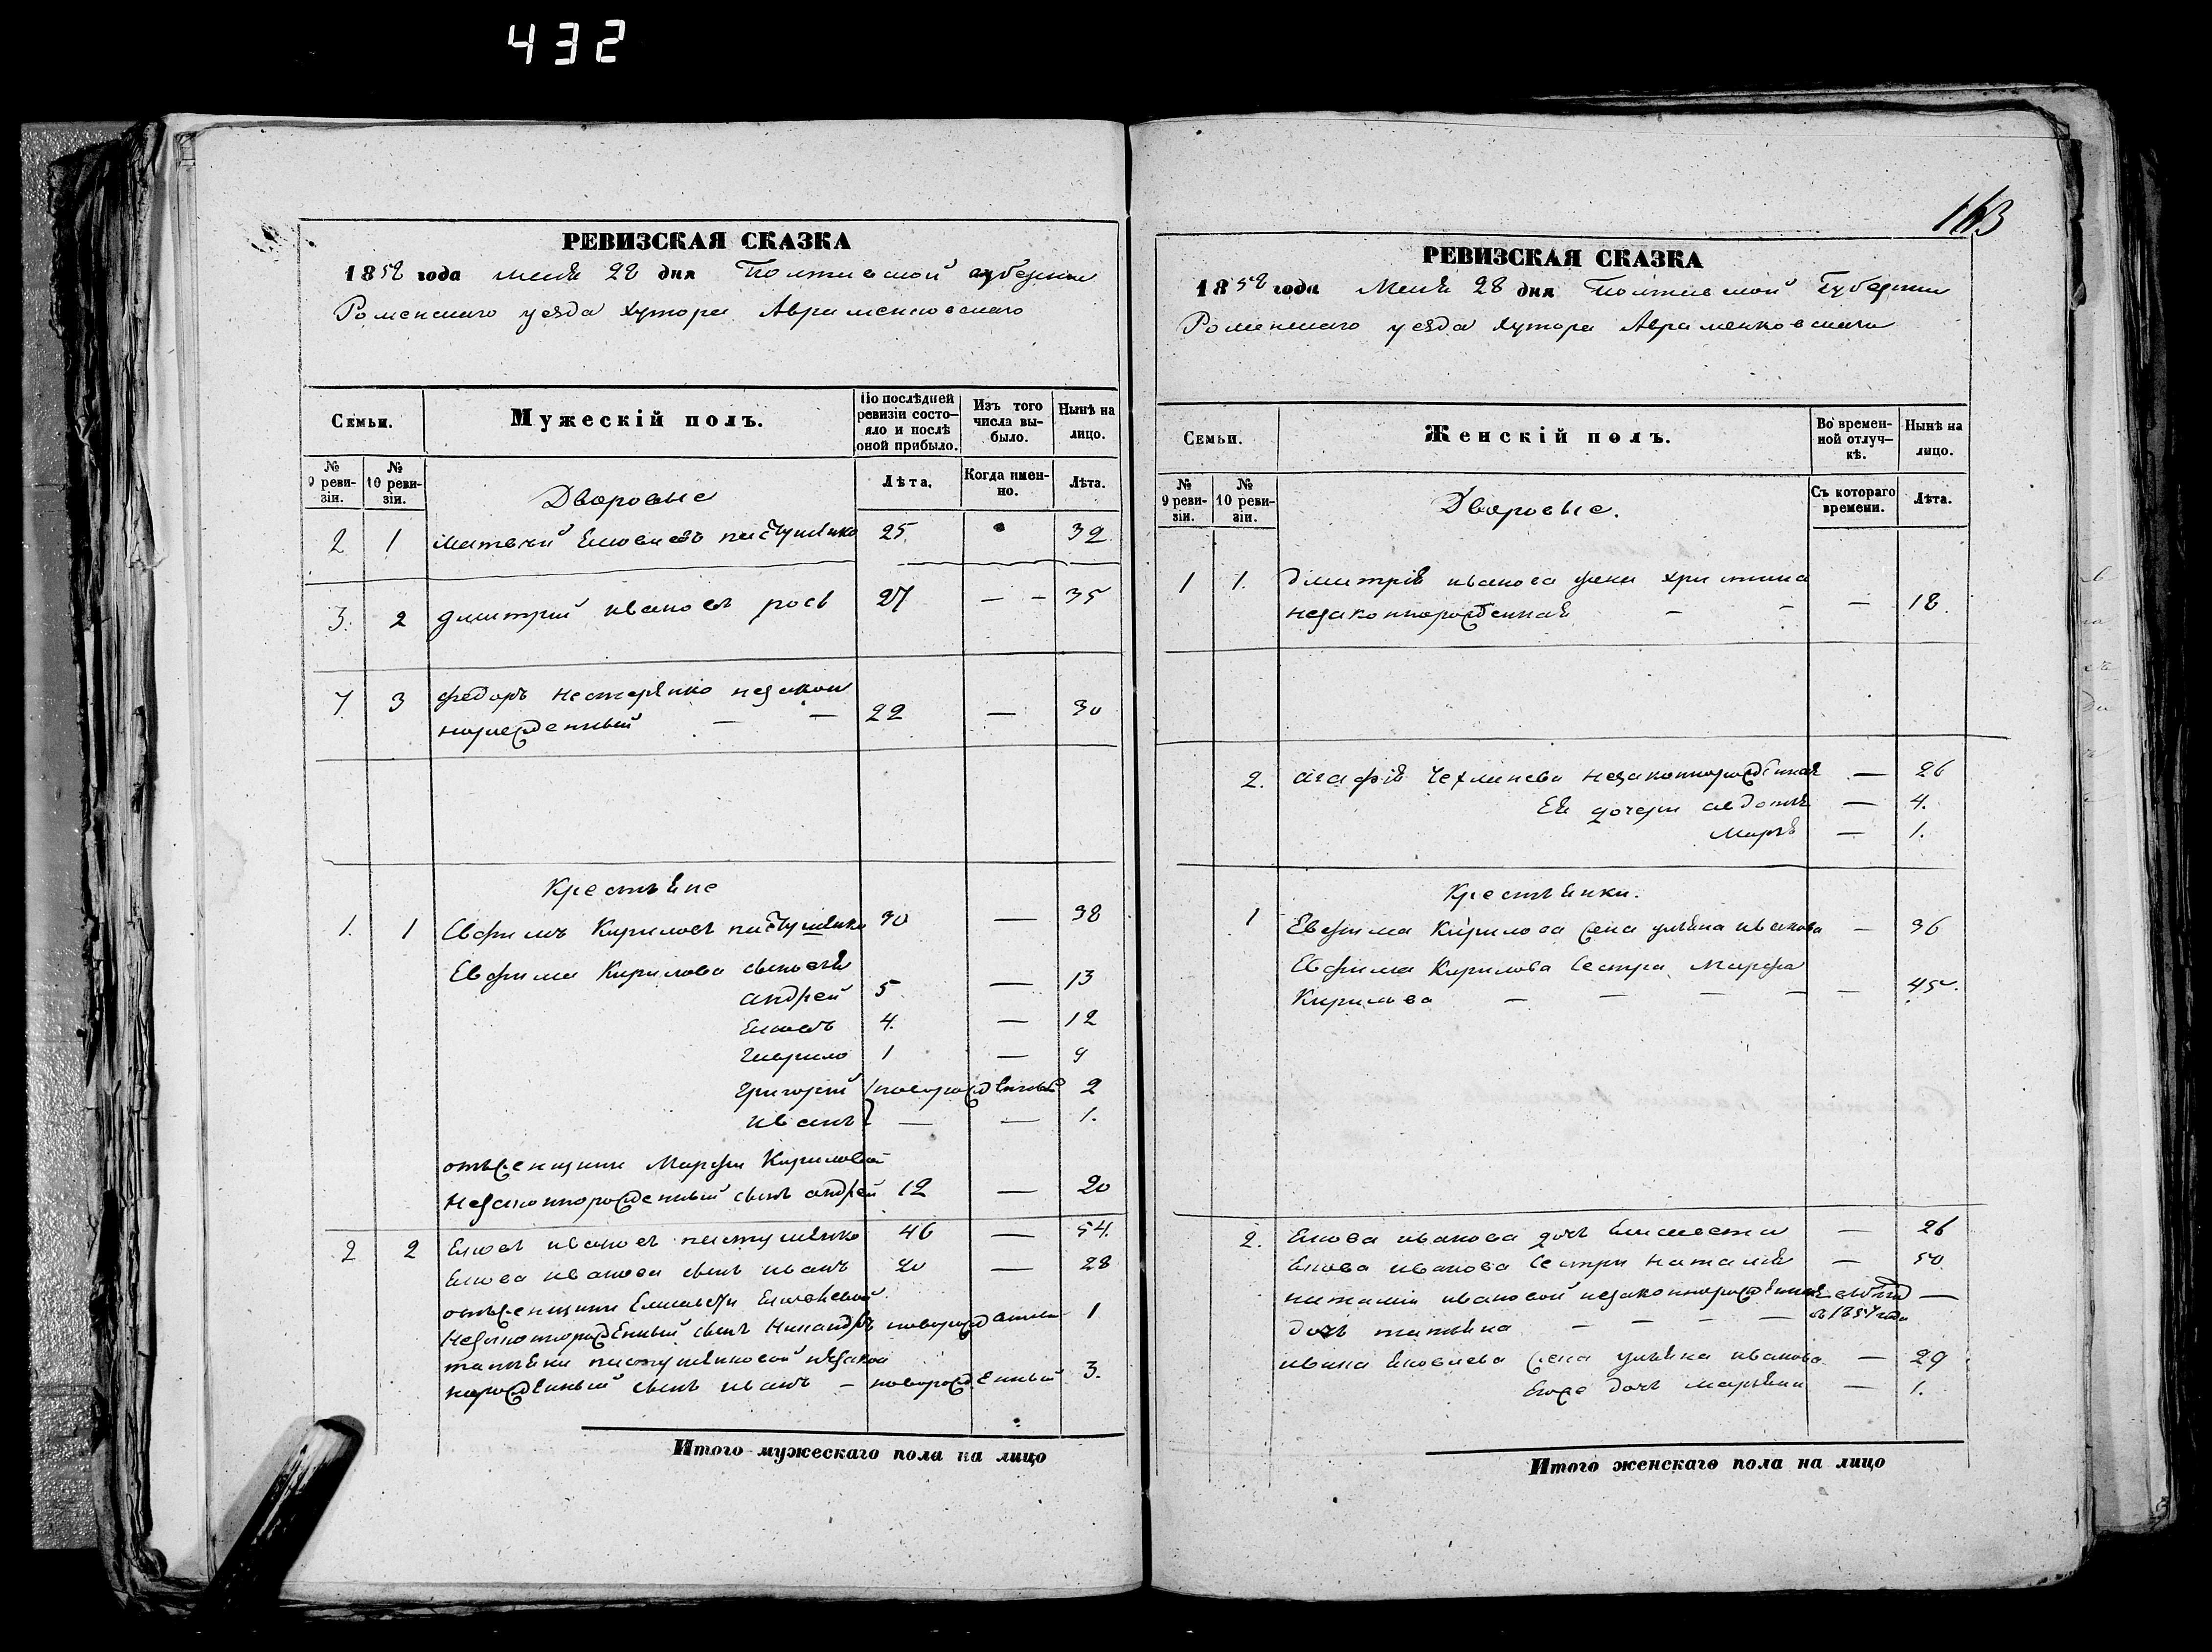 432
РЕВИЗСКАЯ СКАЗКА
1858 года маия 28 дня Полтавской губернии
Роменскаго уезда хутора Авраменковскаго
Семьи.
Мужескій полъ.
По послѣдней ревизіи состо-
яло и послѣ оной прибыло.
Изъ того числа вы-
было.
Нынѣ на лицо.
№ 9 реви-
зіи.
№ 10 реви-
зіи.
Дворовые
Лѣта.
Когда имен-
но.
Лѣта.
2 1 матвѣй Яковлевъ пастушенко 25 32
3. 2 дмитрий ивановъ рось 27 — — 35
7 3 федоръ нестеренко незакон
норожденный — — 22 — 30
Крестьяне
1. 1 Евфимъ Кириловъ пастушенко 30 — 38
Евфима Кирилова сыновья
андрей 5 — 13
Яковъ 4. — 12
Гаврило 1 — 9
Григорий новорожденные 2
иванъ — — 1.
отъ женщини Марфи Кириловой
Незаконнорожденный сынъ андрей 12 — 20
2 2 Яковъ ивановъ пастушенко 46 — 54.
Якова иванова сынъ иванъ 20 — 28
отъ женщини Елисавети Яковлевой
Незаконнорожденный сынъ Никандръ новорожденный 1
татьяни пастушенковой незакон
норожденный сынъ иванъ — новорожденный 3.
Итого мужескаго пола на лицо
163
РЕВИЗСКАЯ СКАЗКА
1858 года Маия 28 дня Полтавской Губернии
Роменскаго уезда хутора Авраменковскаго
Семьи.
Женскій полъ.
Во времен-
ной отлуч-
кѣ.
Нынѣ на лицо.
№ 9 реви-
зіи.
№ 10 реви-
зіи.
Дворовые.
Съ котораго времени.
Лѣта.
1 1. дмитрія иванова жена христина
незаконнорожденная — — — 18.
2. агафія Чехлинева незаконнорожденная — 26
Ея дочери авдотья — 4.
Марья — 1.
Крестьянки.
1 Евфима Кирилова жена ульяна иванова — 36
Евфима Кирилова Сестра Марфа
Кирилова — — — — — 45.
2. Якова иванова дочь Елисавета — 26
Якова иванова Сестра наталия — 50
наталии ивановой незаконнорожденная —
дочь татьяна — — — — 1857 года
ивана Яковлева жена ульяна иванова — 29
Егоже дочь марьяна — 1.
Итого женскаго пола на лицо